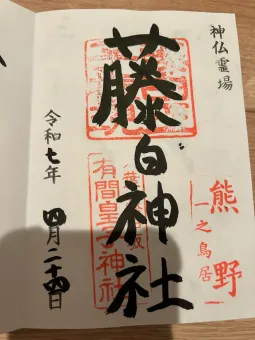 神仏霊場
熊野
一之鳥居
藤白神社
有間皇子神社
令和七年
四月二十四日